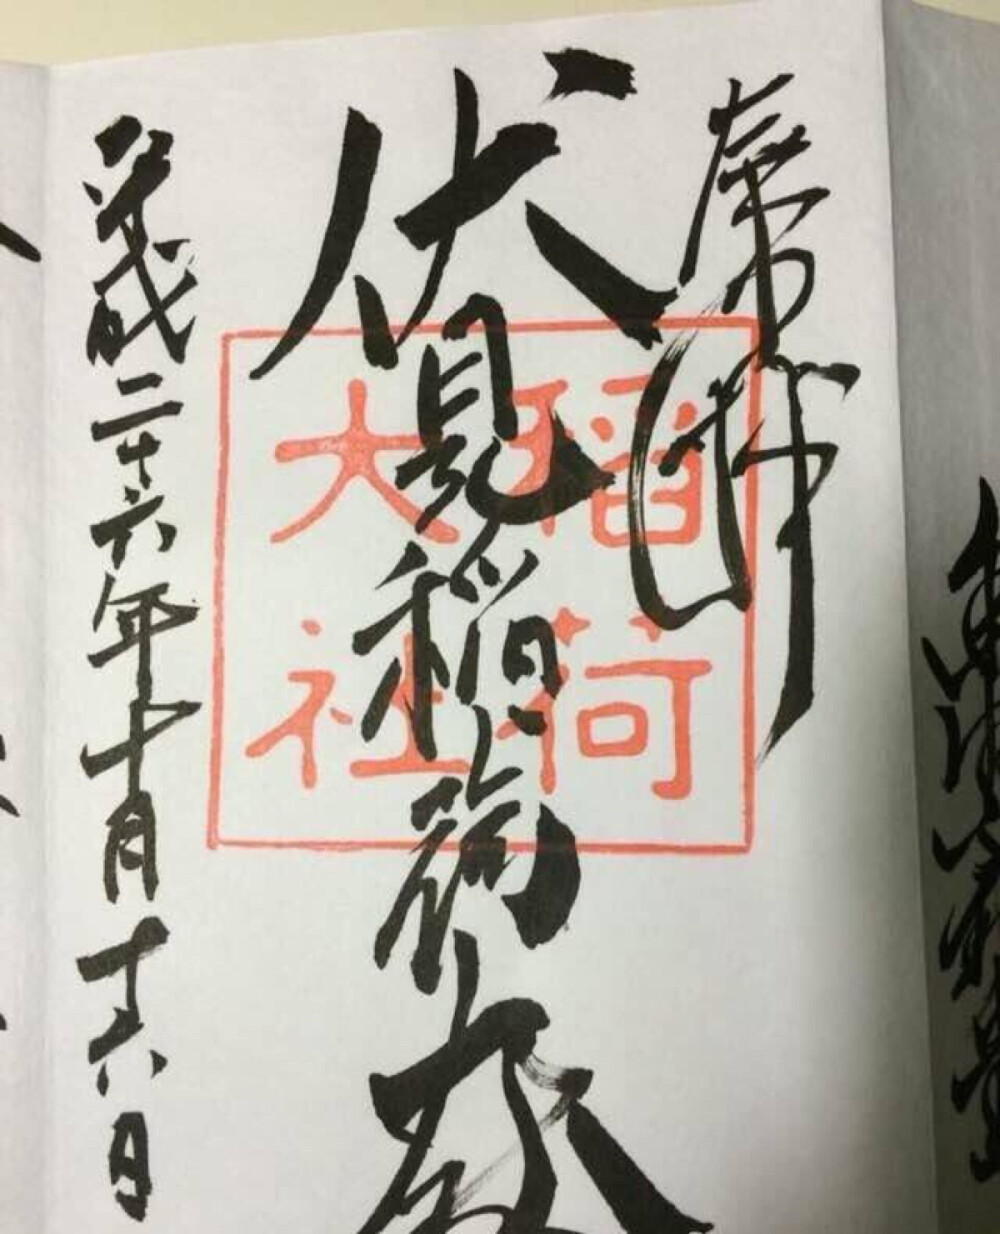 奉拝
伏見稲荷大社
稲荷
大社
平成二十六年十月十六日